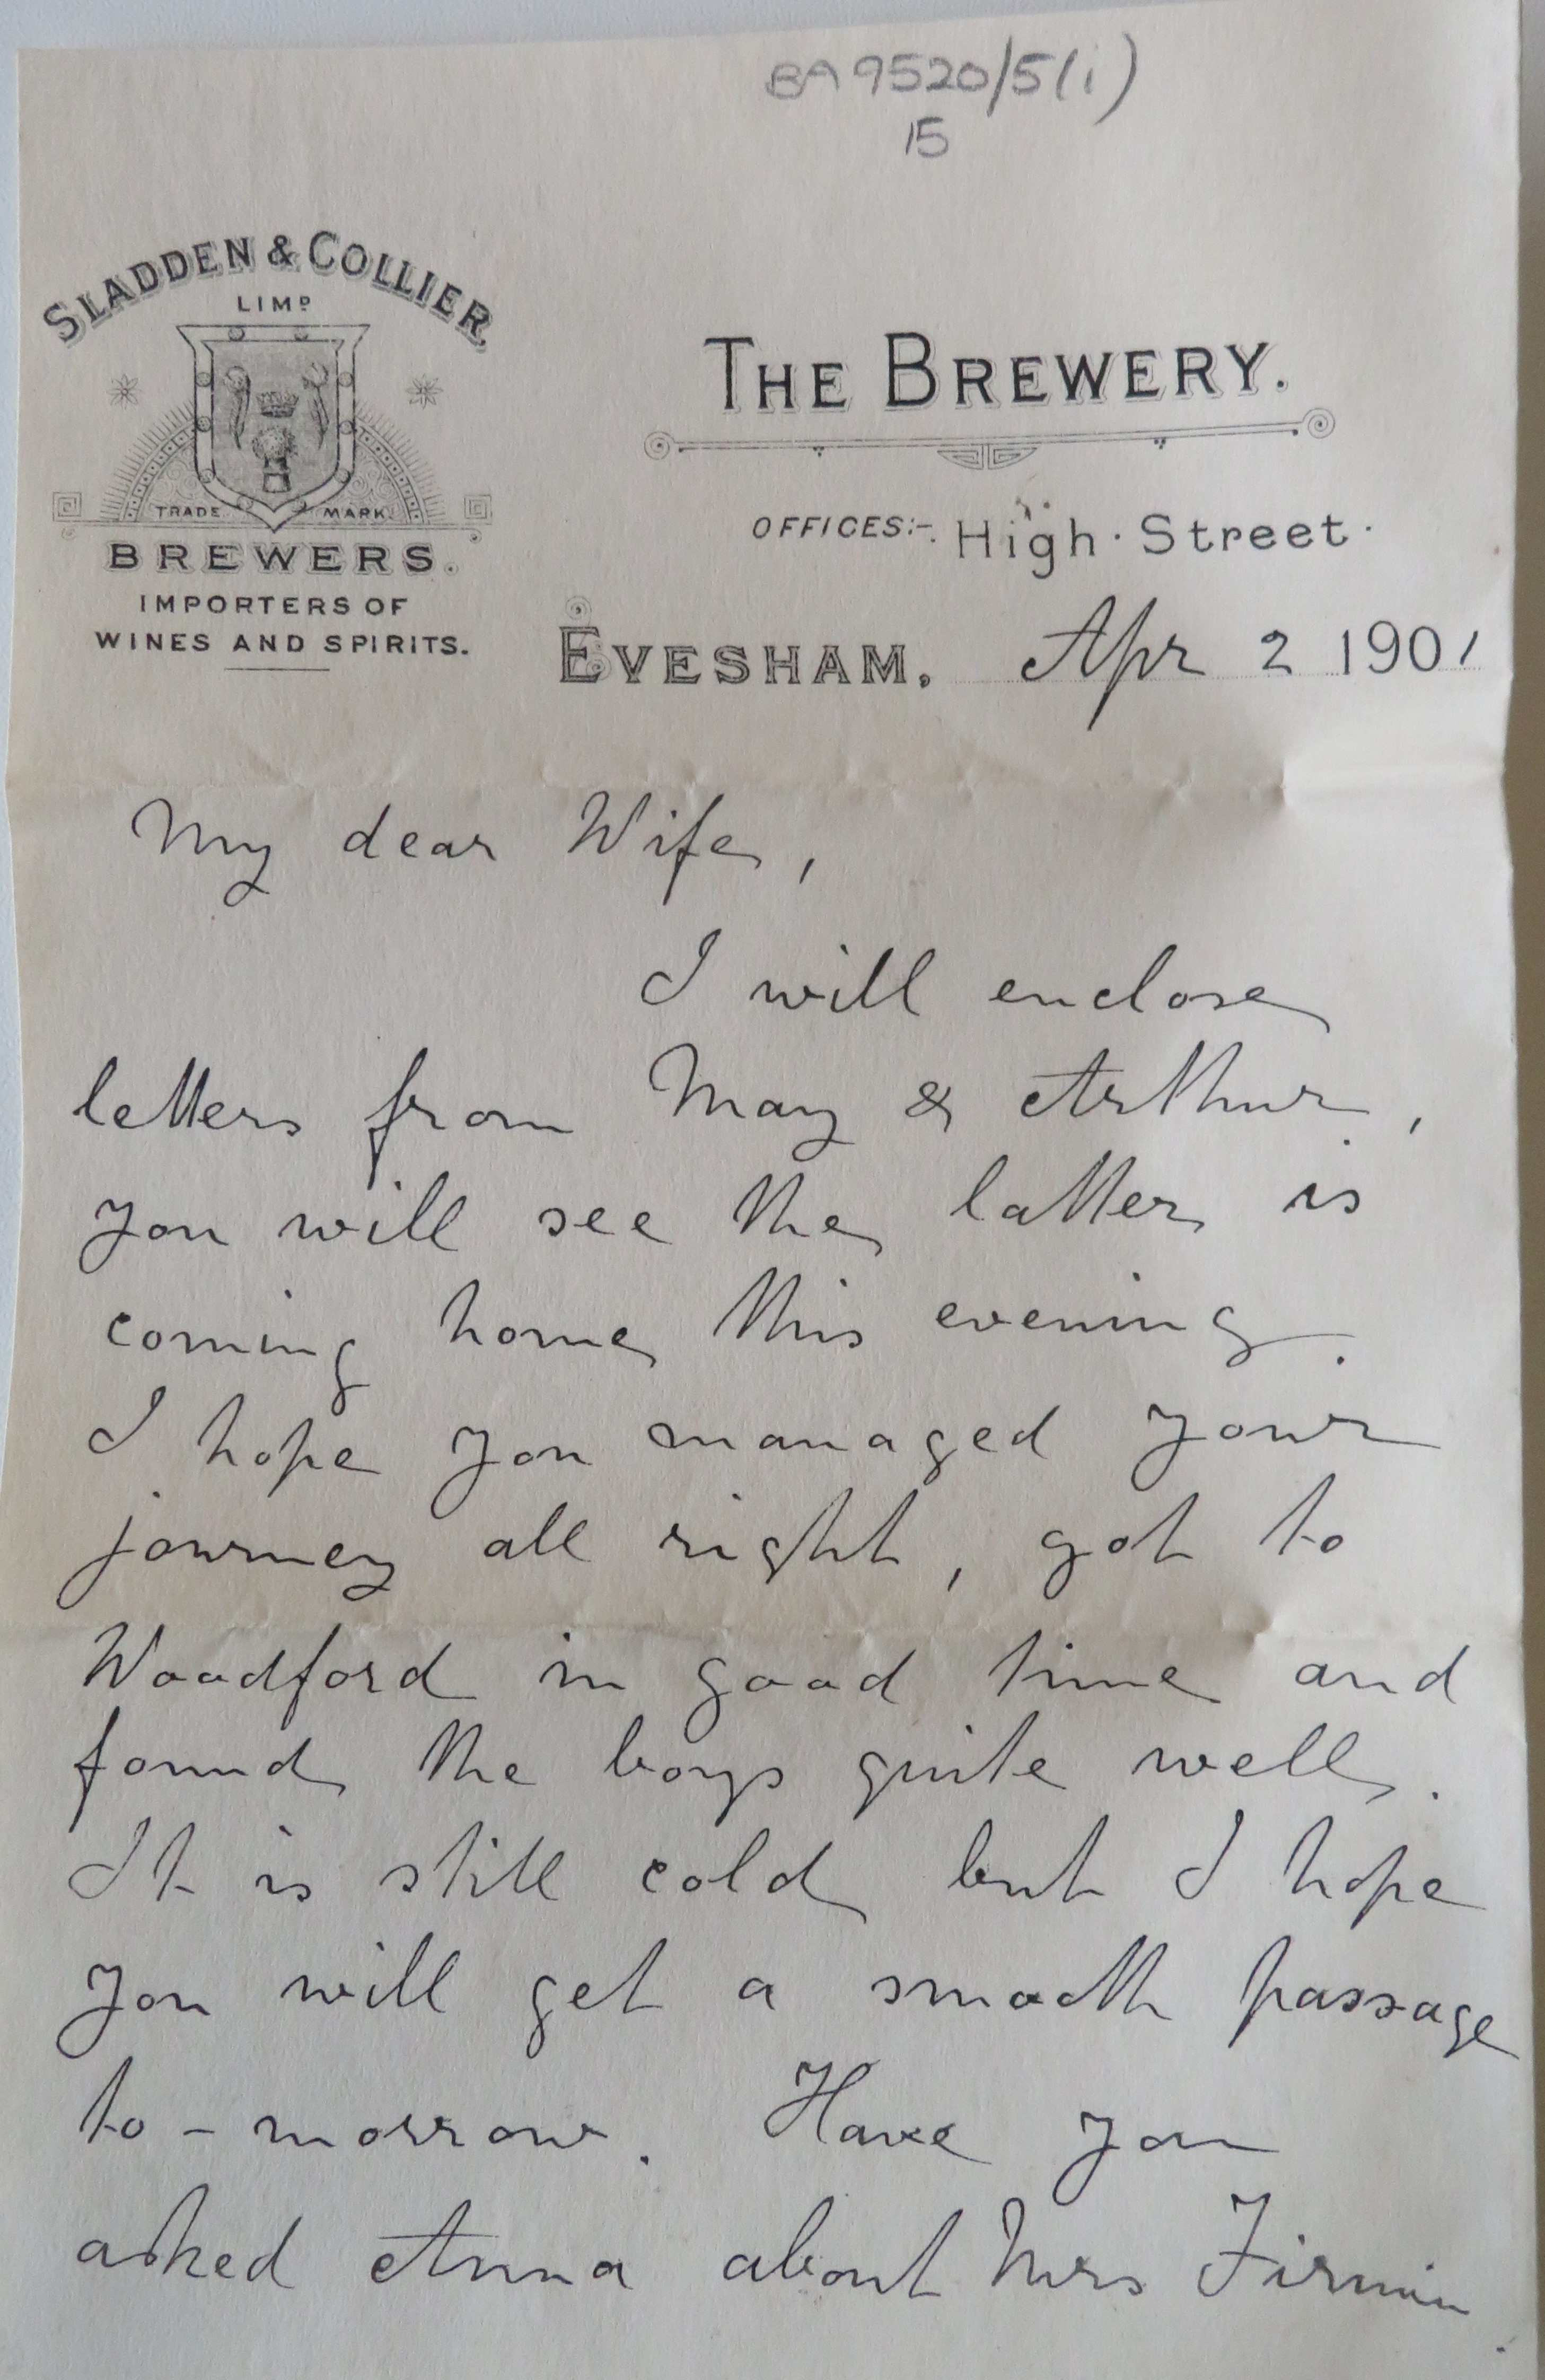 BA 9520/5(i)
15
SLADDEN & COLLIER
LIMD
TRADE MARK
BREWERS.
IMPORTERS OF
WINES AND SPIRITS.
THE BREWERY.
OFFICES:- High Street.
EVESHAM, Apr 2 1901
My dear Wife,
I will enclose
letters from May & Arthur,
you will see the latter is
coming home this evening.
I hope you managed your
journey all right, got to
Woodford in good time and
found the boys quite well.
It is still cold but I hope
you will get a smooth passage
to-morrow. Have you
asked Anna about Mrs Firmin